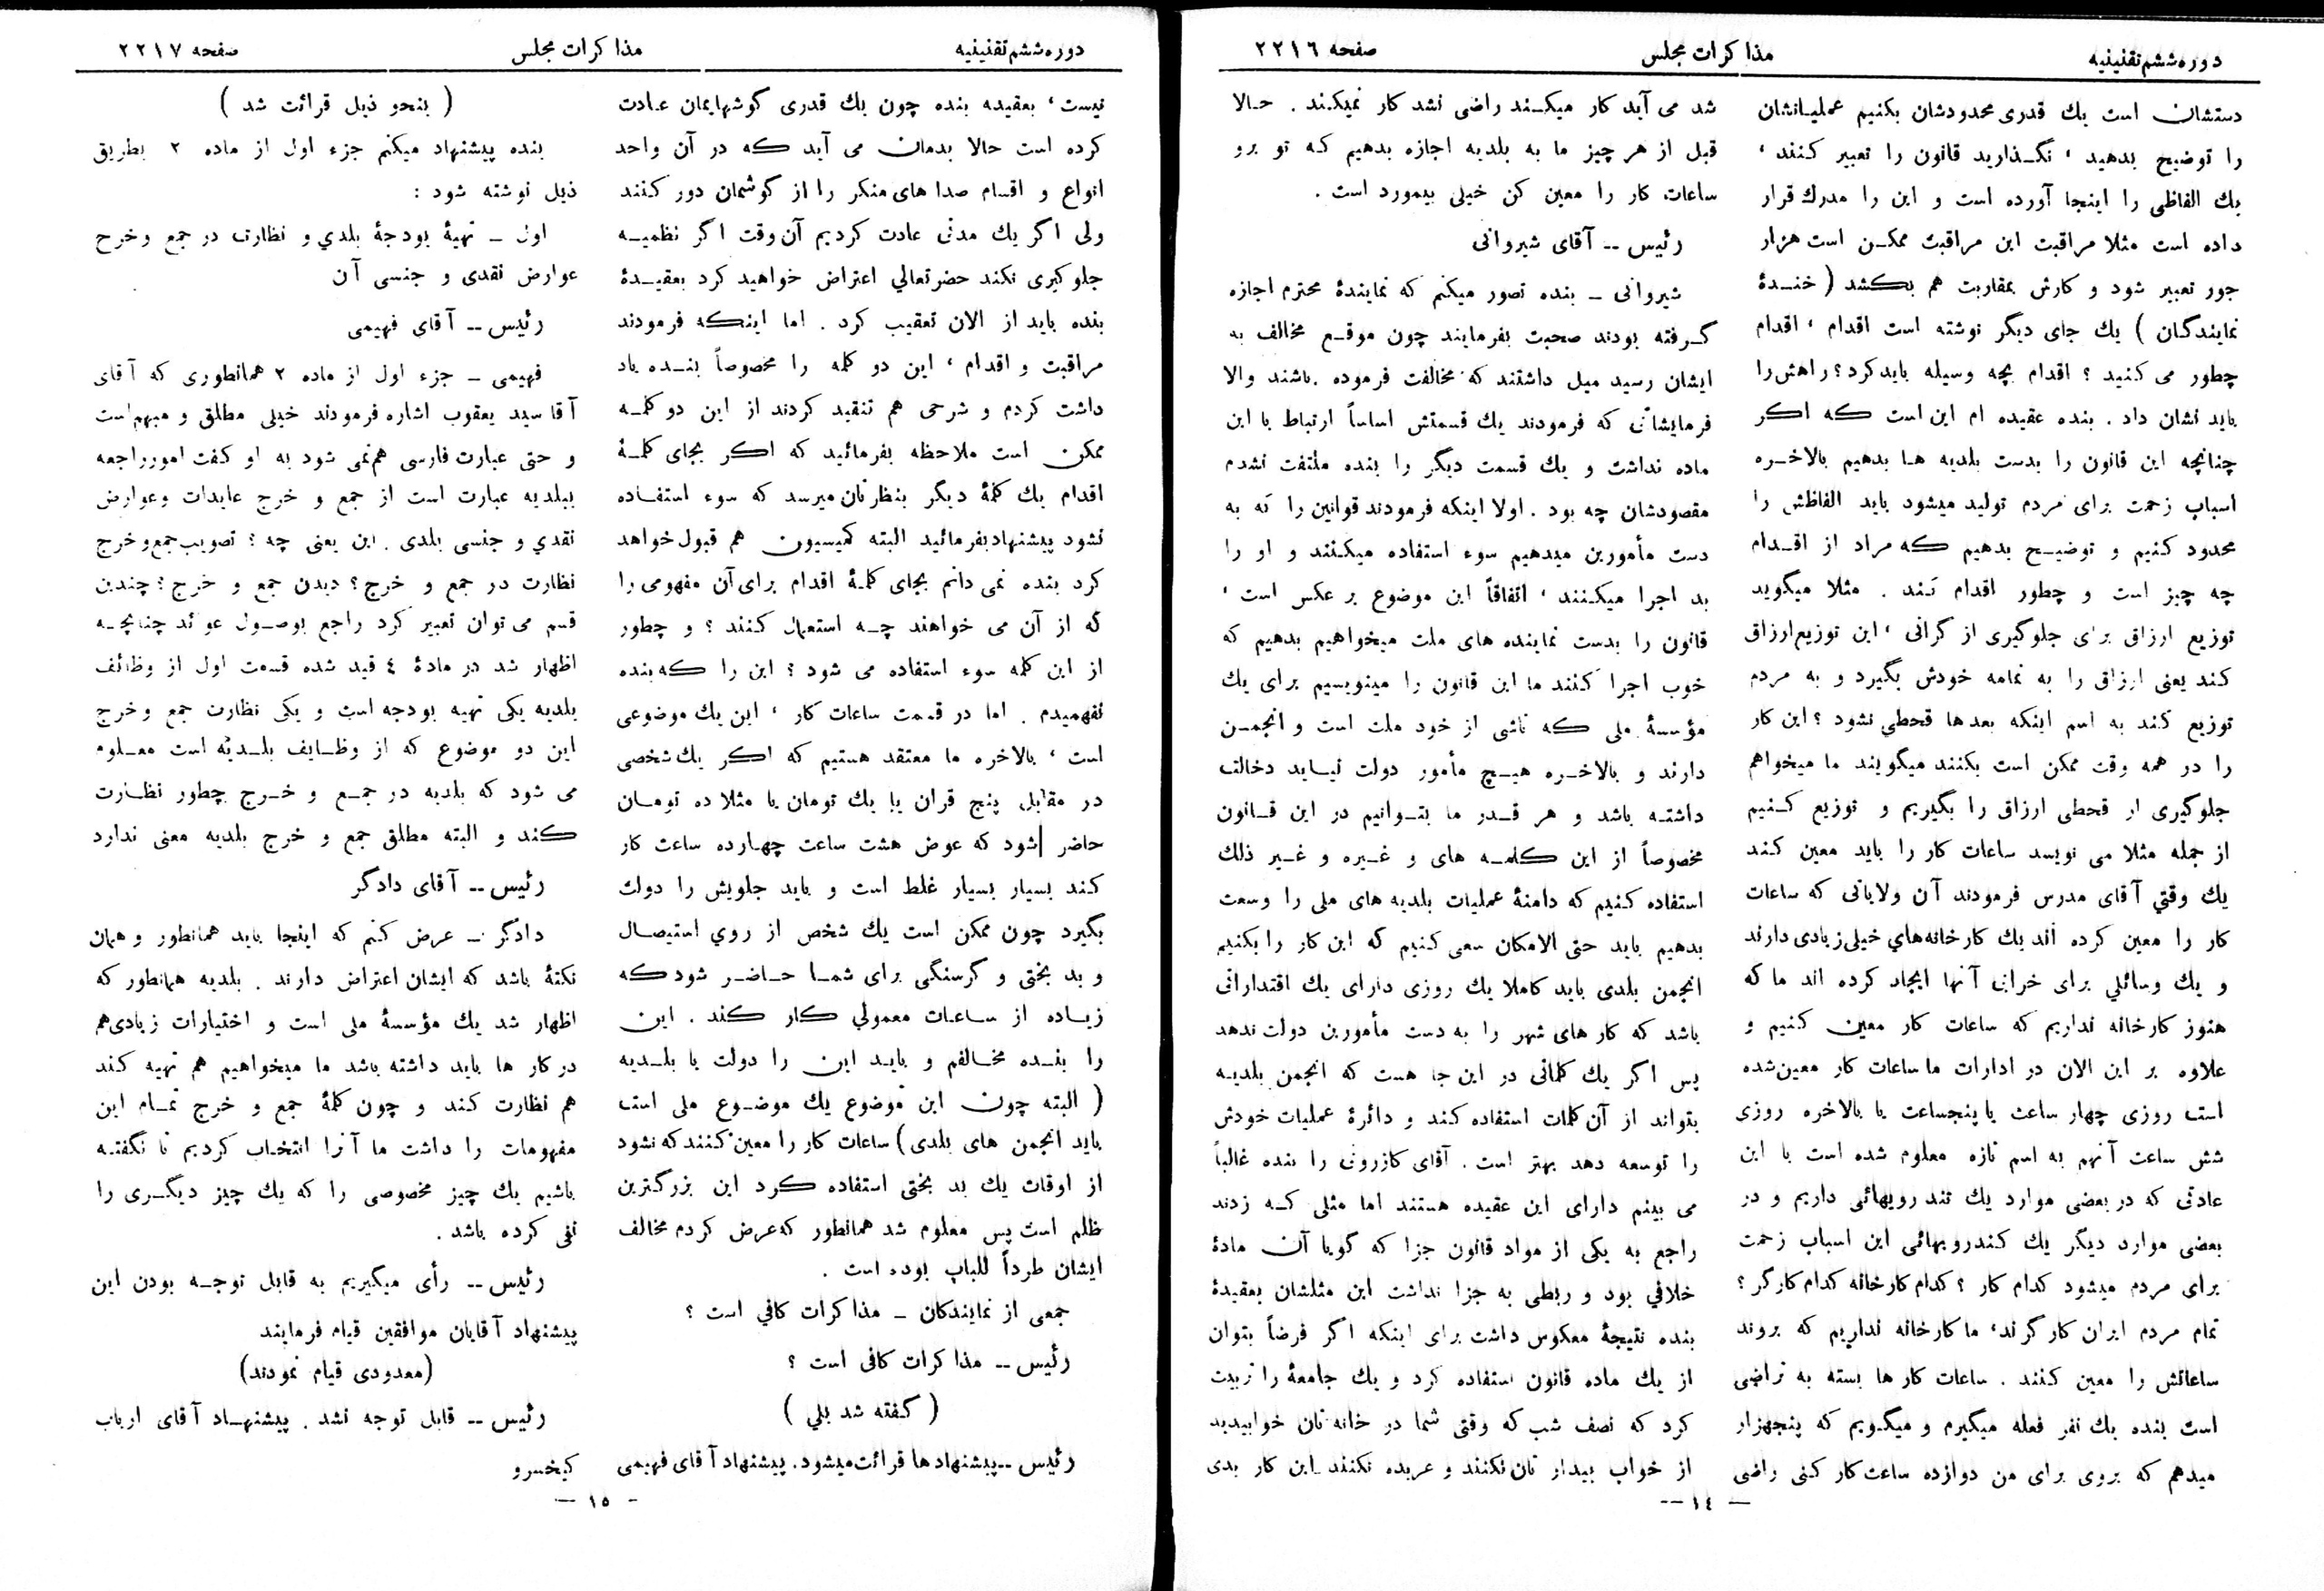 دوره ششم تقنینیه مذاکرات مجلس صفحه ۲۲۱٦
دستشان است یك قدری محدودشان بکنیم عملیاتشان
را توضیح بدهید ، نگذارید قانون را تعبیر کنند ،
یك الفاظی را اینجا آورده است و این را مدرك قرار
داده است مثلا مراقبت این مراقبت ممکن است هزار
جور تعبیر شود و کارش بمقاربت هم بکشد ( خندهٔ
نمایندگان ) یك جای دیگر نوشته است اقدام ، اقدام
چطور می کنید ؟ اقدام بچه وسیله باید کرد ؟ راهش را
باید نشان داد . بنده عقیده ام این است که اگر
چنانچه این قانون را بدست بلدیه ها بدهیم بالاخره
اسباب زحمت برای مردم تولید میشود باید الفاظش را
محدود کنیم و توضیح بدهیم که مراد از اقدام
چه چیز است و چطور اقدام کند . مثلا میگوید
توزیع ارزاق برای جلوگیری از گرانی ، این توزیع ارزاق
کند یعنی ارزاق را به تمامه خودش بگیرد و به مردم
توزیع کند به اسم اینکه بعدها قحطی نشود ؟ این کار
را در همه وقت ممکن است بکنند میگویند ما میخواهم
جلوگیری از قحطی ارزاق را بگیریم و توزیع کنیم
از جمله مثلا می نویسد ساعات کار را باید معین کند
یك وقتی آقای مدرس فرمودند آن ولایاتی که ساعات
کار را معین کرده اند یك کارخانه‌های خیلی زیادی دارند
و یك وسائلی برای خرابی آنها ایجاد کرده اند ما که
هنوز کارخانه نداریم که ساعات کار معین کنیم و
علاوه بر این الان در ادارات ما ساعات کار معین شده
است روزی چهار ساعت یا پنجساعت یا بالاخره روزی
شش ساعت آنهم به اسم تازه معلوم شده است با این
عادتی که در بعضی موارد یك تند رویهائی داریم و در
بعضی موارد دیگر یك کندرویهائی این اسباب زحمت
برای مردم میشود کدام کار ؟ کدام کارخانه کدام کارگر ؟
تمام مردم ایران کارگرند، ما کارخانه نداریم که بروند
ساعاتش را معین کنند . ساعات کار ها بسته به تراضی
است بنده یك نفر فعله میگیرم و میگویم که پنجهزار
میدهم که بروی برای من دوازده ساعت کار کنی راضی
شد می آید کار میکند راضی نشد کار نمیکند . حالا
قبل از هر چیز ما به بلدیه اجازه بدهیم که تو برو
ساعات کار را معین کن خیلی بیمورد است .
رئیس -- آقای شیروانی
شیروانی - بنده تصور میکنم که نمایندهٔ محترم اجازه
گرفته بودند صحبت بفرمایند چون موقع مخالف به
ایشان رسید میل داشتند که مخالفت فرموده باشند والا
فرمایشاتی که فرمودند یك قسمتش اساساً ارتباط با این
ماده نداشت و یك قسمت دیگر را بنده ملتفت نشدم
مقصودشان چه بود . اولا اینکه فرمودند قوانین را که به
دست مأمورین میدهیم سوء استفاده میکنند و او را
بد اجرا میکنند ، اتفاقاً این موضوع بر عکس است ،
قانون را بدست نماینده های ملت میخواهیم بدهیم که
خوب اجرا کنند ما این قانون را مینویسیم برای یك
مؤسسهٔ ملی که ناشی از خود ملت است و انجمن
دارند و بالاخره هیچ مأمور دولت نباید دخالت
داشته باشد و هر قدر ما بتوانیم در این قانون
مخصوصاً از این کلمه های و غیره و غیر ذلك
استفاده کنیم که دامنهٔ عملیات بلدیه های ملی را وسعت
بدهیم باید حتی الامکان سعی کنیم که این کار را بکنیم
انجمن بلدی باید کاملا یك روزی دارای یك اقتداراتی
باشد که کار های شهر را به دست مأمورین دولت ندهد
پس اگر یك کلماتی در این جا هست که انجمن بلدیه
بتواند از آن کلمات استفاده کند و دائرهٔ عملیات خودش
را توسعه دهد بهتر است . آقای کازرونی را بنده غالباً
می بینم دارای این عقیده هستند اما مثلی که زدند
راجع به یکی از مواد قانون جزا که گویا آن مادهٔ
خلافی بود و ربطی به جزا نداشت این مثلشان بعقیدهٔ
بنده نتیجهٔ معکوس داشت برای اینکه اگر فرضاً بتوان
از یك ماده قانون استفاده کرد و یك جامعهٔ را تربیت
کرد که نصف شب که وقتی شما در خانه تان خوابیدید
از خواب بیدار تان نکنند و عربده نکنند این کار بدی
— ۱٤ --
دوره ششم تقنینیه مذاکرات مجلس صفحه ۲۲۱۷
نیست ، بعقیده بنده چون یك قدری گوشهایمان عادت
کرده است حالا بدمان می آید که در آن واحد
انواع و اقسام صدا های منکر را از گوشمان دور کنند
ولی اگر یك مدتی عادت کردیم آن وقت اگر نظمیه
جلوگیری نکند حضرتعالی اعتراض خواهید کرد بعقیدهٔ
بنده باید از الان تعقیب کرد . اما اینکه فرمودند
مراقبت و اقدام ، این دو کلمه را مخصوصاً بنده یاد
داشت کردم و شرحی هم تنقید کردند از این دو کلمه
ممکن است ملاحظه بفرمائید که اگر بجای کلمهٔ
اقدام یك کلمهٔ دیگر بنظرتان میرسد که سوء استفاده
نشود پیشنهاد بفرمائید البته کمیسیون هم قبول خواهد
کرد بنده نمی دانم بجای کلمهٔ اقدام برای آن مفهومی را
که از آن می خواهند چه استعمال کنند ؟ و چطور
از این کلمه سوء استفاده می شود ؟ این را که بنده
نفهمیدم . اما در قسمت ساعات کار ، این یك موضوعی
است ، بالاخره ما معتقد هستیم که اگر یك شخصی
در مقابل پنج قران یا یك تومان یا مثلا ده تومان
حاضر شود که عوض هشت ساعت چهارده ساعت کار
کند بسیار بسیار غلط است و باید جلویش را دولت
بگیرد چون ممکن است یك شخص از روی استیصال
و بد بختی و گرسنگی برای شما حاضر شود که
زیاده از ساعات معمولی کار کند . این
را بنده مخالفم و باید این را دولت یا بلدیه
( البته چون این موضوع یك موضوع ملی است
باید انجمن های بلدی ) ساعات کار را معین کنند که نشود
از اوقات یك بد بختی استفاده کرد این بزرگترین
ظلم است پس معلوم شد همانطور که عرض کردم مخالف
ایشان طرداً للباب بوده است .
جمعی از نمایندکان - مذاکرات کافی است ؟
رئیس -- مذاکرات کافی است ؟
( گفته شد بلی )
رئیس -- پیشنهادها قرائت میشود . پیشنهاد آقای فهیمی
( بنحو ذیل قرائت شد )
بنده پیشنهاد میکنم جزء اول از ماده ۲ بطریق
ذیل نوشته شود :
اول - تهیهٔ بودجهٔ بلدی و نظارت در جمع و خرج
عوارض نقدی و جنسی آن
رئیس -- آقای فهیمی
فهیمی - جزء اول از ماده ۲ همانطوری که آقای
آقا سید یعقوب اشاره فرمودند خیلی مطلق و مبهم است
و حتی عبارت فارسی هم نمی شود به او گفت امور راجعه
ببلدیه عبارت است از جمع و خرج عایدات وعوارض
نقدی و جنسی بلدی . این یعنی چه ؟ تصویب جمع و خرج
نظارت در جمع و خرج ؟ دیدن جمع و خرج ؟ چندین
قسم می توان تعبیر کرد راجع بوصول عوائد چنانچه
اظهار شد در مادهٔ ٤ قید شده قسمت اول از وظائف
بلدیه یکی تهیه بودجه است و یکی نظارت جمع و خرج
این دو موضوع که از وظایف بلدیه است معلوم
می شود که بلدیه در جمع و خرج چطور نظارت
کند و البته مطلق جمع و خرج بلدیه معنی ندارد
رئیس -- آقای دادگر
دادگر - عرض کنم که اینجا باید همانطور و همان
نکتهٔ باشد که ایشان اعتراض دارند . بلدیه همانطور که
اظهار شد یك مؤسسهٔ ملی است و اختیارات زیادی هم
در کار ها باید داشته باشد ما میخواهیم هم تهیه کند
هم نظارت کند و چون کلمهٔ جمع و خرج تمام این
مفهومات را داشت ما آنرا انتخاب کردیم تا نگفته
باشیم یك چیز مخصوصی را که یك چیز دیگری را
نفی کرده باشد .
رئیس -- رأی میگیریم به قابل توجه بودن این
پیشنهاد آقایان موافقین قیام فرمایند
(معدودی قیام نمودند)
رئیس -- قابل توجه نشد . پیشنهاد آقای ارباب
کیخسرو
- ۱٥ —